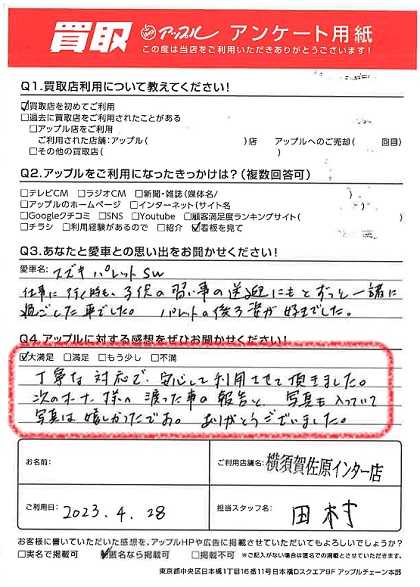 買取 アップル アンケート用紙
この度は当店をご利用いただきありがとうございます!
Q1.買取店利用について教えてください!
☑買取店を初めてご利用
□過去に買取店をご利用されたことがある
□アップル店をご利用
ご利用された店舗:アップル( )店 アップルへのご売却( 回目)
□その他の買取店( )
Q2.アップルをご利用になったきっかけは?(複数回答可)
□テレビCM □ラジオCM □新聞・雑誌(媒体名/ )
□アップルのホームページ □インターネット(サイト名 )
□Googleクチコミ □SNS □Youtube □顧客満足度ランキングサイト( )
□チラシ □利用経験があるので □紹介 ☑看板を見て
Q3.あなたと愛車との思い出をお聞かせください!
愛車名: スズキ パレットSW
仕事に行く時も、子供の習い事の送迎にもとずっと一緒に
過ごした車でした。 パレットの後ろ姿が好きでした。
Q4.アップルに対する感想をぜひお聞かせください!
☑大満足 □満足 □もう少し □不満
丁寧な対応で、安心して利用させて頂きました。
次のオーナー様へ渡った事の報告と、写真も入っていて
写真は嬉しかったです。 ありがとうございました。
お名前: ご利用店舗名: 横須賀佐原インター店
ご利用日: 2023.4.28 担当スタッフ名: 田村
お客様に書いていただいた感想を、アップルHPや広告に掲載させていただいてもよろしいでしょうか?
□実名で掲載可 ☑匿名なら掲載可 □掲載不可 ※ご記入がない場合は匿名での掲載とさせていただきます。
東京都中央区日本橋1丁目16番11号日本橋Dスクエア9F アップルチェーン本部